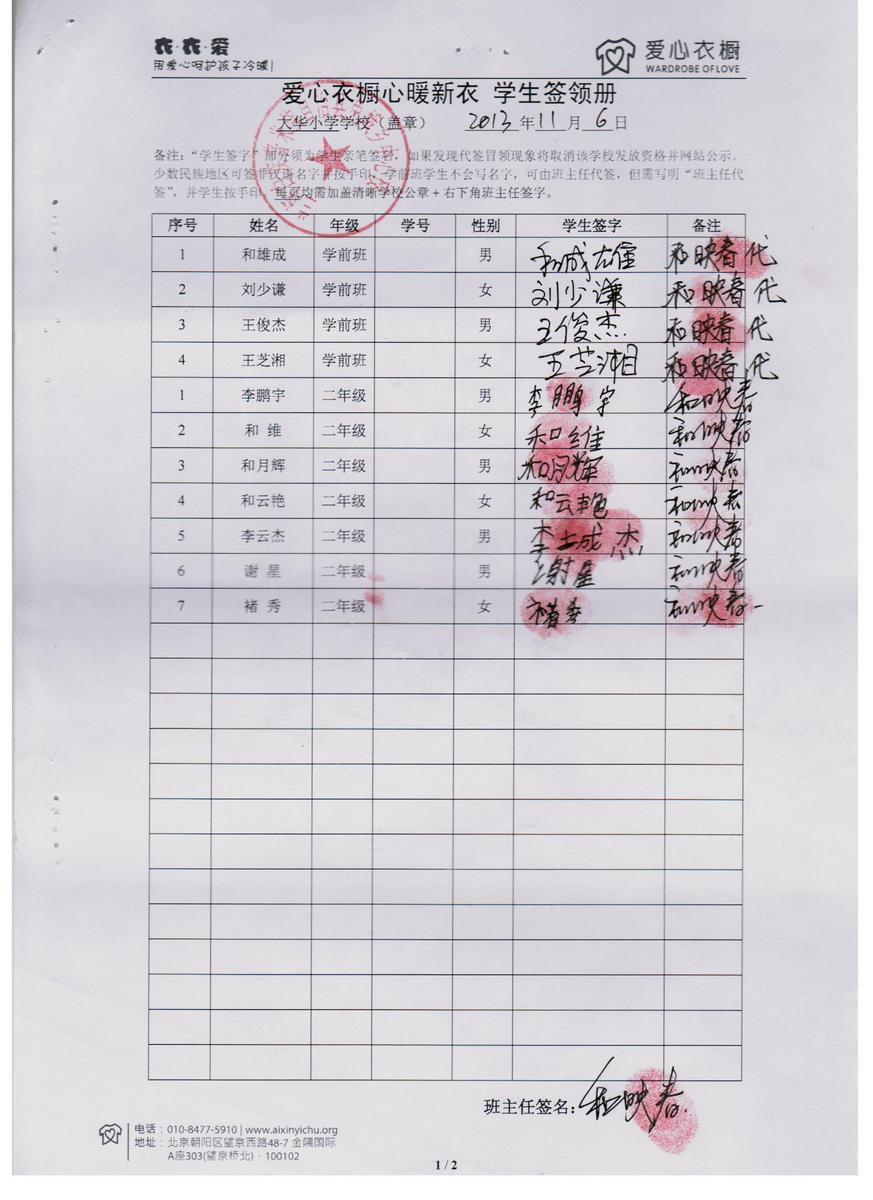 衣·衣·爱
用爱心呵护孩子冷暖！
爱心衣橱
WARDROBE OF LOVE
爱心衣橱心暖新衣 学生签领册
大华小学学校（盖章） 2013 年 11 月 6 日
备注：“学生签字”部分须为学生亲笔签名，如果发现代签冒领现象将取消该学校发放资格并网站公示。
少数民族地区可签非汉语名字并按手印，学前班学生不会写名字，可由班主任代签，但需写明“班主任代
签”，并学生按手印。每页均需加盖清晰学校公章＋右下角班主任签字。
序号 姓名 年级 学号 性别 学生签字 备注
1 和雄成 学前班 男 和成雄 和映春代
2 刘少谦 学前班 女 刘少谦 和映春代
3 王俊杰 学前班 男 王俊杰 和映春代
4 王芝湘 学前班 女 王芝湘 和映春代
1 李鹏宇 二年级 男 李鹏宇 和映春
2 和 维 二年级 女 和维 和映春
3 和月辉 二年级 男 和月辉 和映春
4 和云艳 二年级 女 和云艳 和映春
5 李云杰 二年级 男 李 杰 和映春
6 谢 星 二年级 男 谢星 和映春
7 褚 秀 二年级 女 褚秀 和映春
班主任签名：和映春
电话：010-8477-5910 | www.aixinyichu.org
地址：北京朝阳区望京西路48-7 金隅国际
A座303(望京桥北)·100102
1 / 2